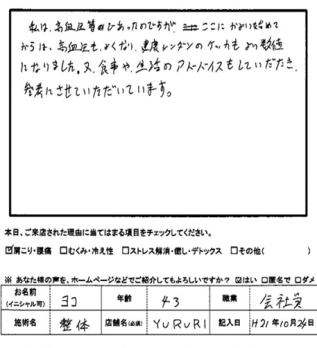 私は、高血圧等があったのですが、ここにかよいはじめて
からは、高血圧も、よくなり、健康シンダンのケッカもよい数値
になりました。又、食事や、生活のアドバイスもしていただき、
参考にさせていただいています。
本日、ご来店された理由に当てはまる項目をチェックしてください。
☑肩こり・腰痛 □むくみ・冷え性 □ストレス解消・癒し・デトックス □その他( )
※ あなた様の声を、ホームページなどでご紹介してもよろしいですか？ ☑はい □匿名で □ダメ
お名前 (イニシャル可) ヨコ 年齢 43 職業 会社員
施術名 整体 店舗名(必須) YURURI 記入日 H21年10月24日